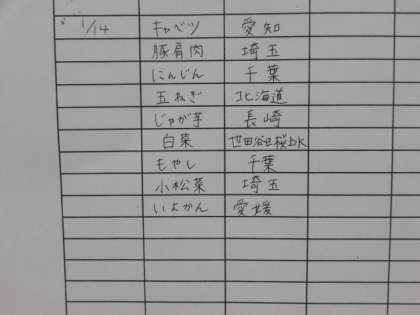 1/14 キャベツ 愛知
豚肩肉 埼玉
にんじん 千葉
玉ねぎ 北海道
じゃが芋 長崎
白菜 世田谷区桜上水
もやし 千葉
小松菜 埼玉
いよかん 愛媛